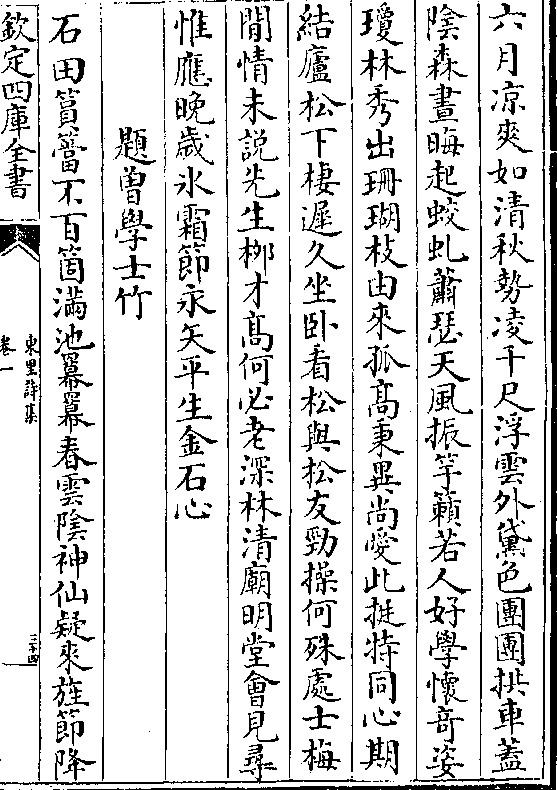 六月凉爽如清秋勢凌千尺浮雲外黛色團團拱車蓋
陰森晝晦起蛟虬蕭瑟天風振竽籟若人好學懷竒姿
瓊林秀出珊瑚枝由來孤高秉異尚愛此挺特同心期
結廬松下棲遲久坐卧看松與松友勁操何殊處士梅
閒情未說先生栁才髙何必老深林清廟明堂會見尋
惟應晚歲氷霜節永矢平生金石心
題曽學士竹
石田篔簹不百箇滿池羃羃春雲陰神仙疑來旌節降
欽定四庫全書
東里詩集
卷一
三十四